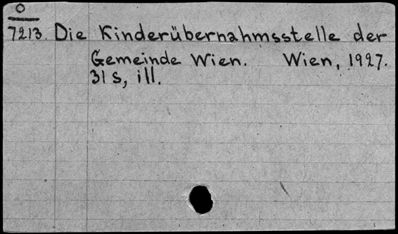 O
7213 Die Kinderübernahmsstelle der
Gemeinde Wien. Wien, 1927.
31 S, ill.